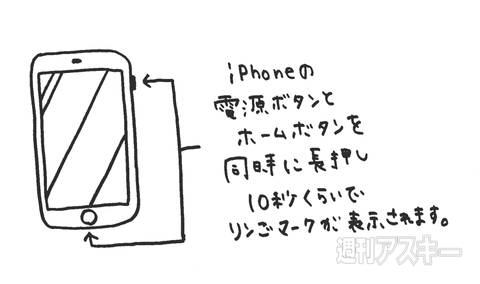 iPhoneの
電源ボタンと
ホームボタンを
同時に長押し
10秒くらいで
リンゴマークが表示されます。
週刊アスキー